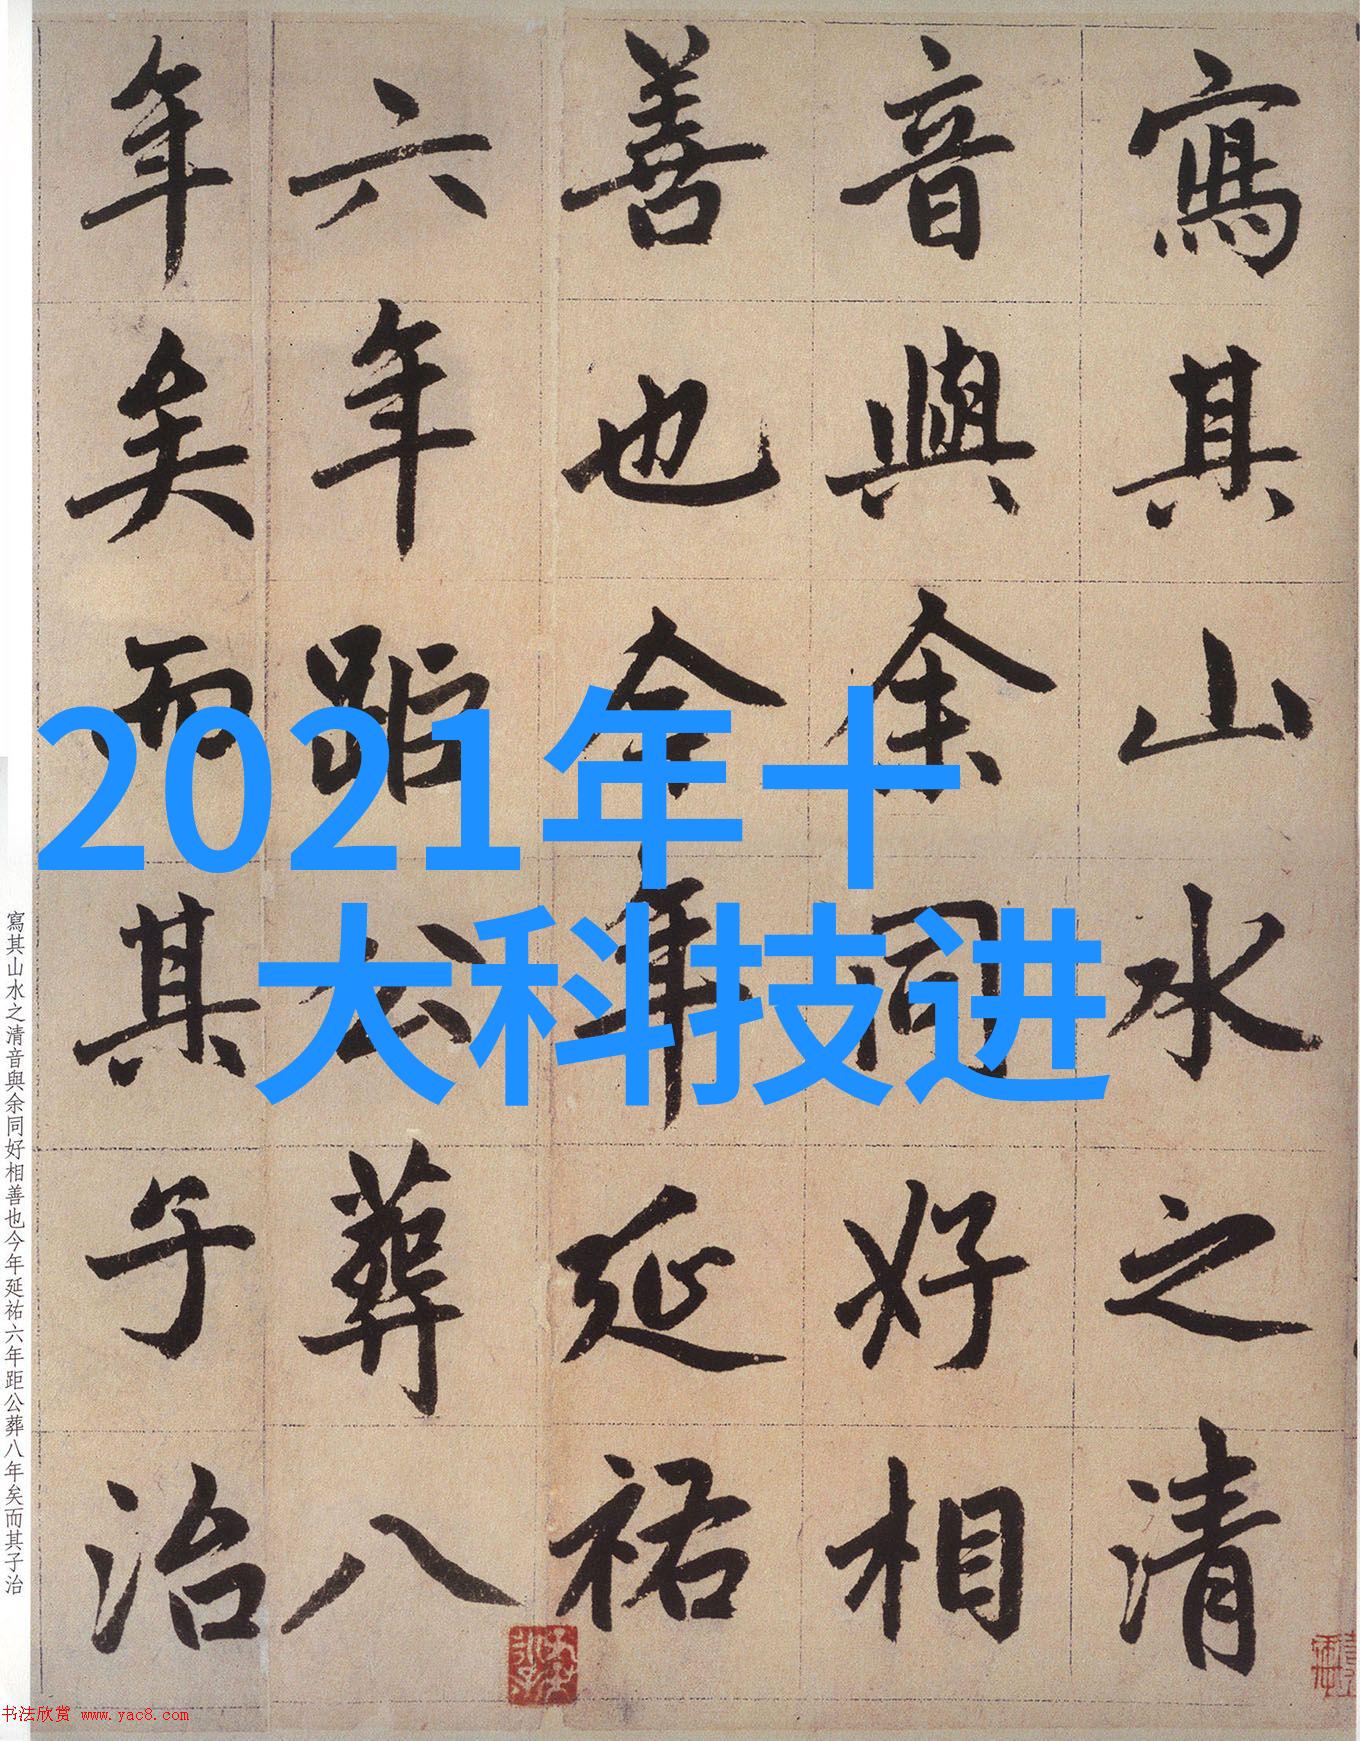 寫其山水之清
音與余同好相
善也今年延祐
六年距公葬八
年矣而其子治
2021年十
大科技进
寫其山水之清音與余同好相善也今年延祐六年距公葬八年矣而其子治
书法欣赏 www.yac8.com